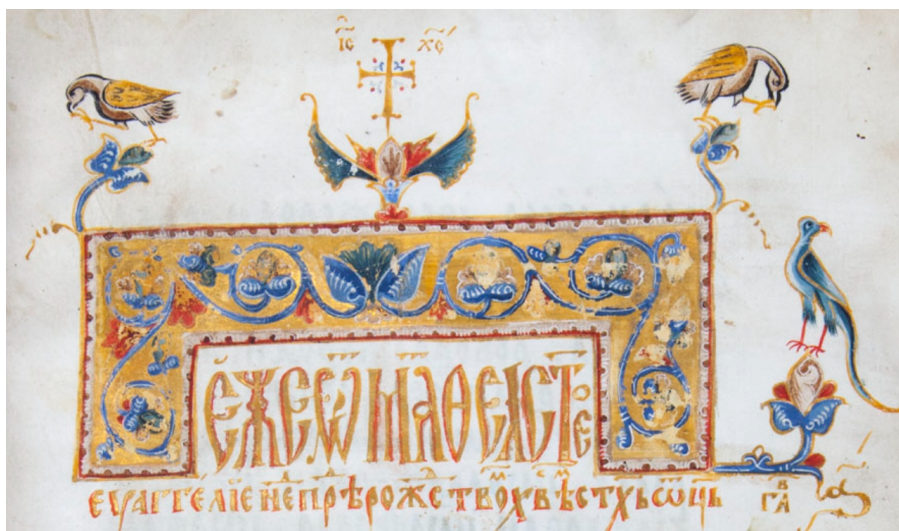 іс хс
еже ѿ маѳеа ст҃ое
еѵаггеліе не прѣрожство хв҃ѣ ст҃хь ѿць
гл҃а а҃